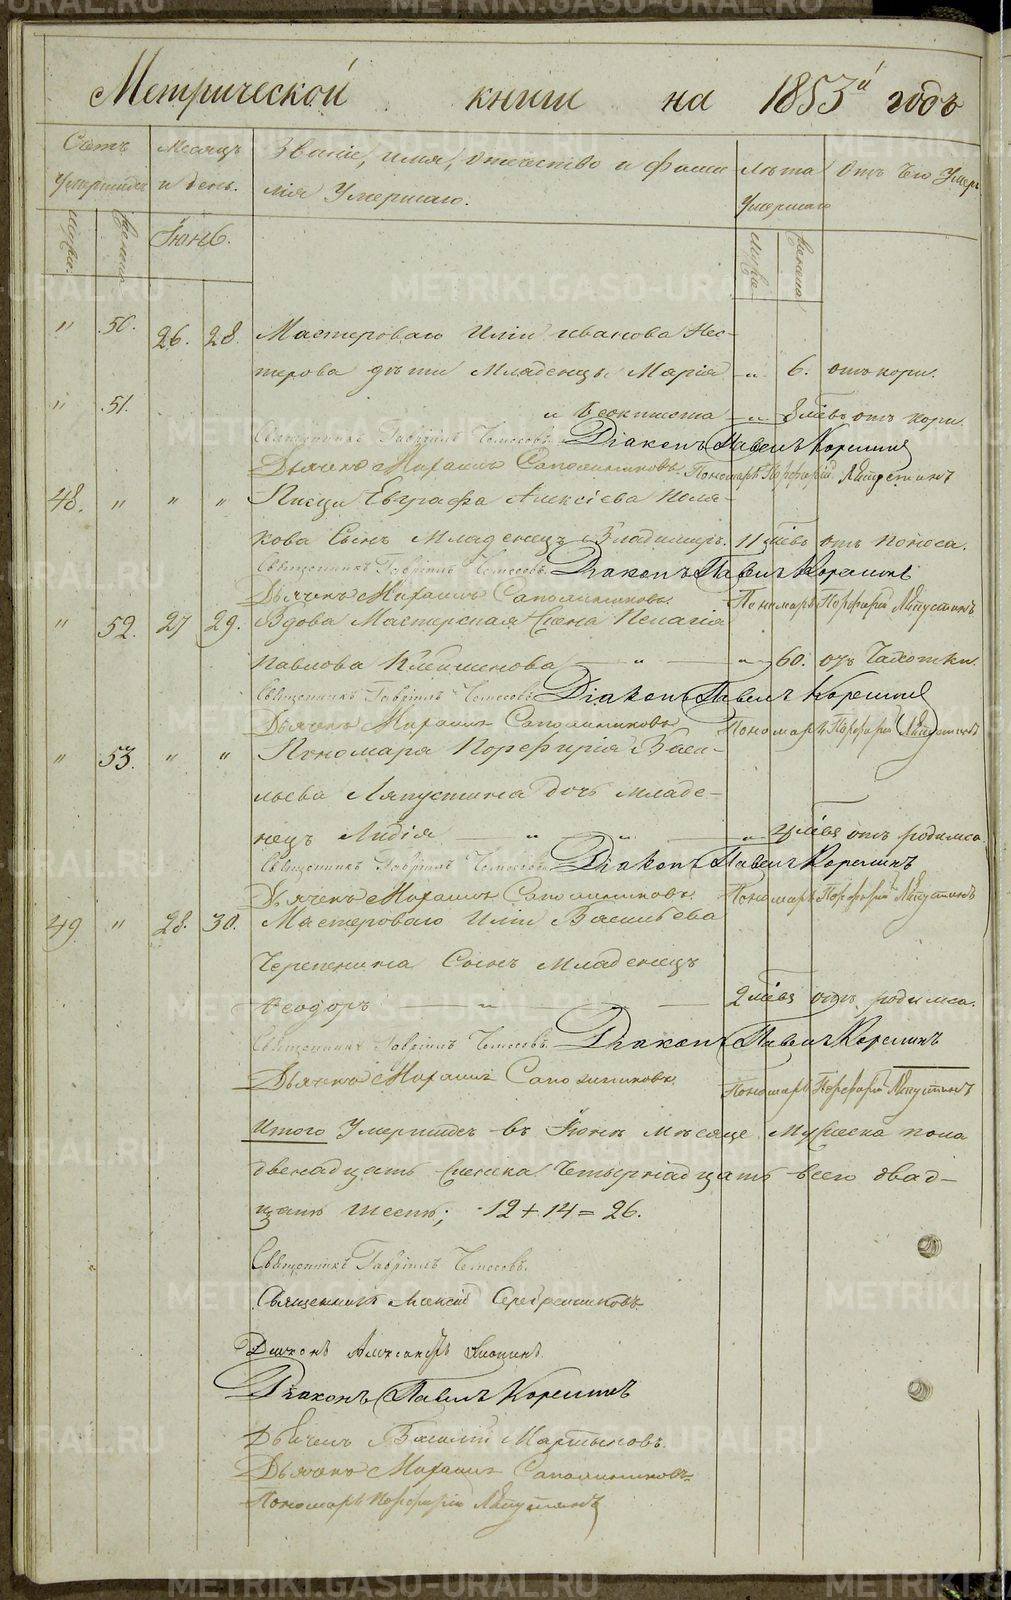 Метрической книги на 1853й годъ
Счетъ умершихъ
Месяцъ и день.
Званіе, имя, отчество и фами
лія Умершаго.
лѣта Умершаго
Отъ чего Умеръ
мужа.
женска
Іюнь.
мужа
женска
" 50. 26. 28. Мастероваго Иліи Иванова Нес-
терова дѣти Младенцы Марія - " 6. отъ кори.
" 51. и Феоктиста - " - 8 мѣс. отъ кори.
Священникъ Гавріилъ Діаконъ Павелъ
Дьячекъ Михаилъ Сапожниковъ. Пономарь Порфирій Ляпустинъ
48. " " " Писца Евграфа Алексіева Поля-
кова Сынъ Младенецъ Владимиръ. 11 мѣс. отъ поноса.
Священникъ Гавріилъ Діаконъ Павелъ
Дьячекъ Михаилъ Сапожниковъ. Пономарь Порфирій Ляпустинъ
" 52. 27 29. Вдова Мастерская Жена Пелагія
Павлова - " - " 60. отъ Чахотки.
Священникъ Гавріилъ Діаконъ Павелъ
Дьячекъ Михаилъ Сапожниковъ Пономарь Порфирій Ляпустинъ
" 53. " " Пономаря Порфирія Васи-
льева Ляпустина дочь младе-
нецъ Лидія - " - " - " мѣс. отъ родимса
Священникъ Гавріилъ Діаконъ Павелъ
Дьячекъ Михаилъ Сапожниковъ. Пономарь Порфирій Ляпустинъ
49. " 28. 30. Мастероваго Иліи Васильева
Черепенина Сынъ Младенецъ
Феодоръ - " - 2 мѣс. отъ родимса.
Священникъ Гавріилъ Діаконъ Павелъ
Дьячекъ Михаилъ Сапожниковъ. Пономарь Порфирій Ляпустинъ
Итого Умершихъ въ Іюнѣ мѣсяце Мужеска пола
двенадцать Женска Четырнадцать всего двад-
цать шесть; 12+14=26.
Священникъ Гавріилъ
Священникъ Серебренниковъ
Діаконъ Александръ
Діаконъ Павелъ
Дьячекъ Василій Мартыновъ.
Дьячекъ Михаилъ Сапожниковъ
Пономарь Порфирій Ляпустинъ
METRIKI.GASO-URAL.RU